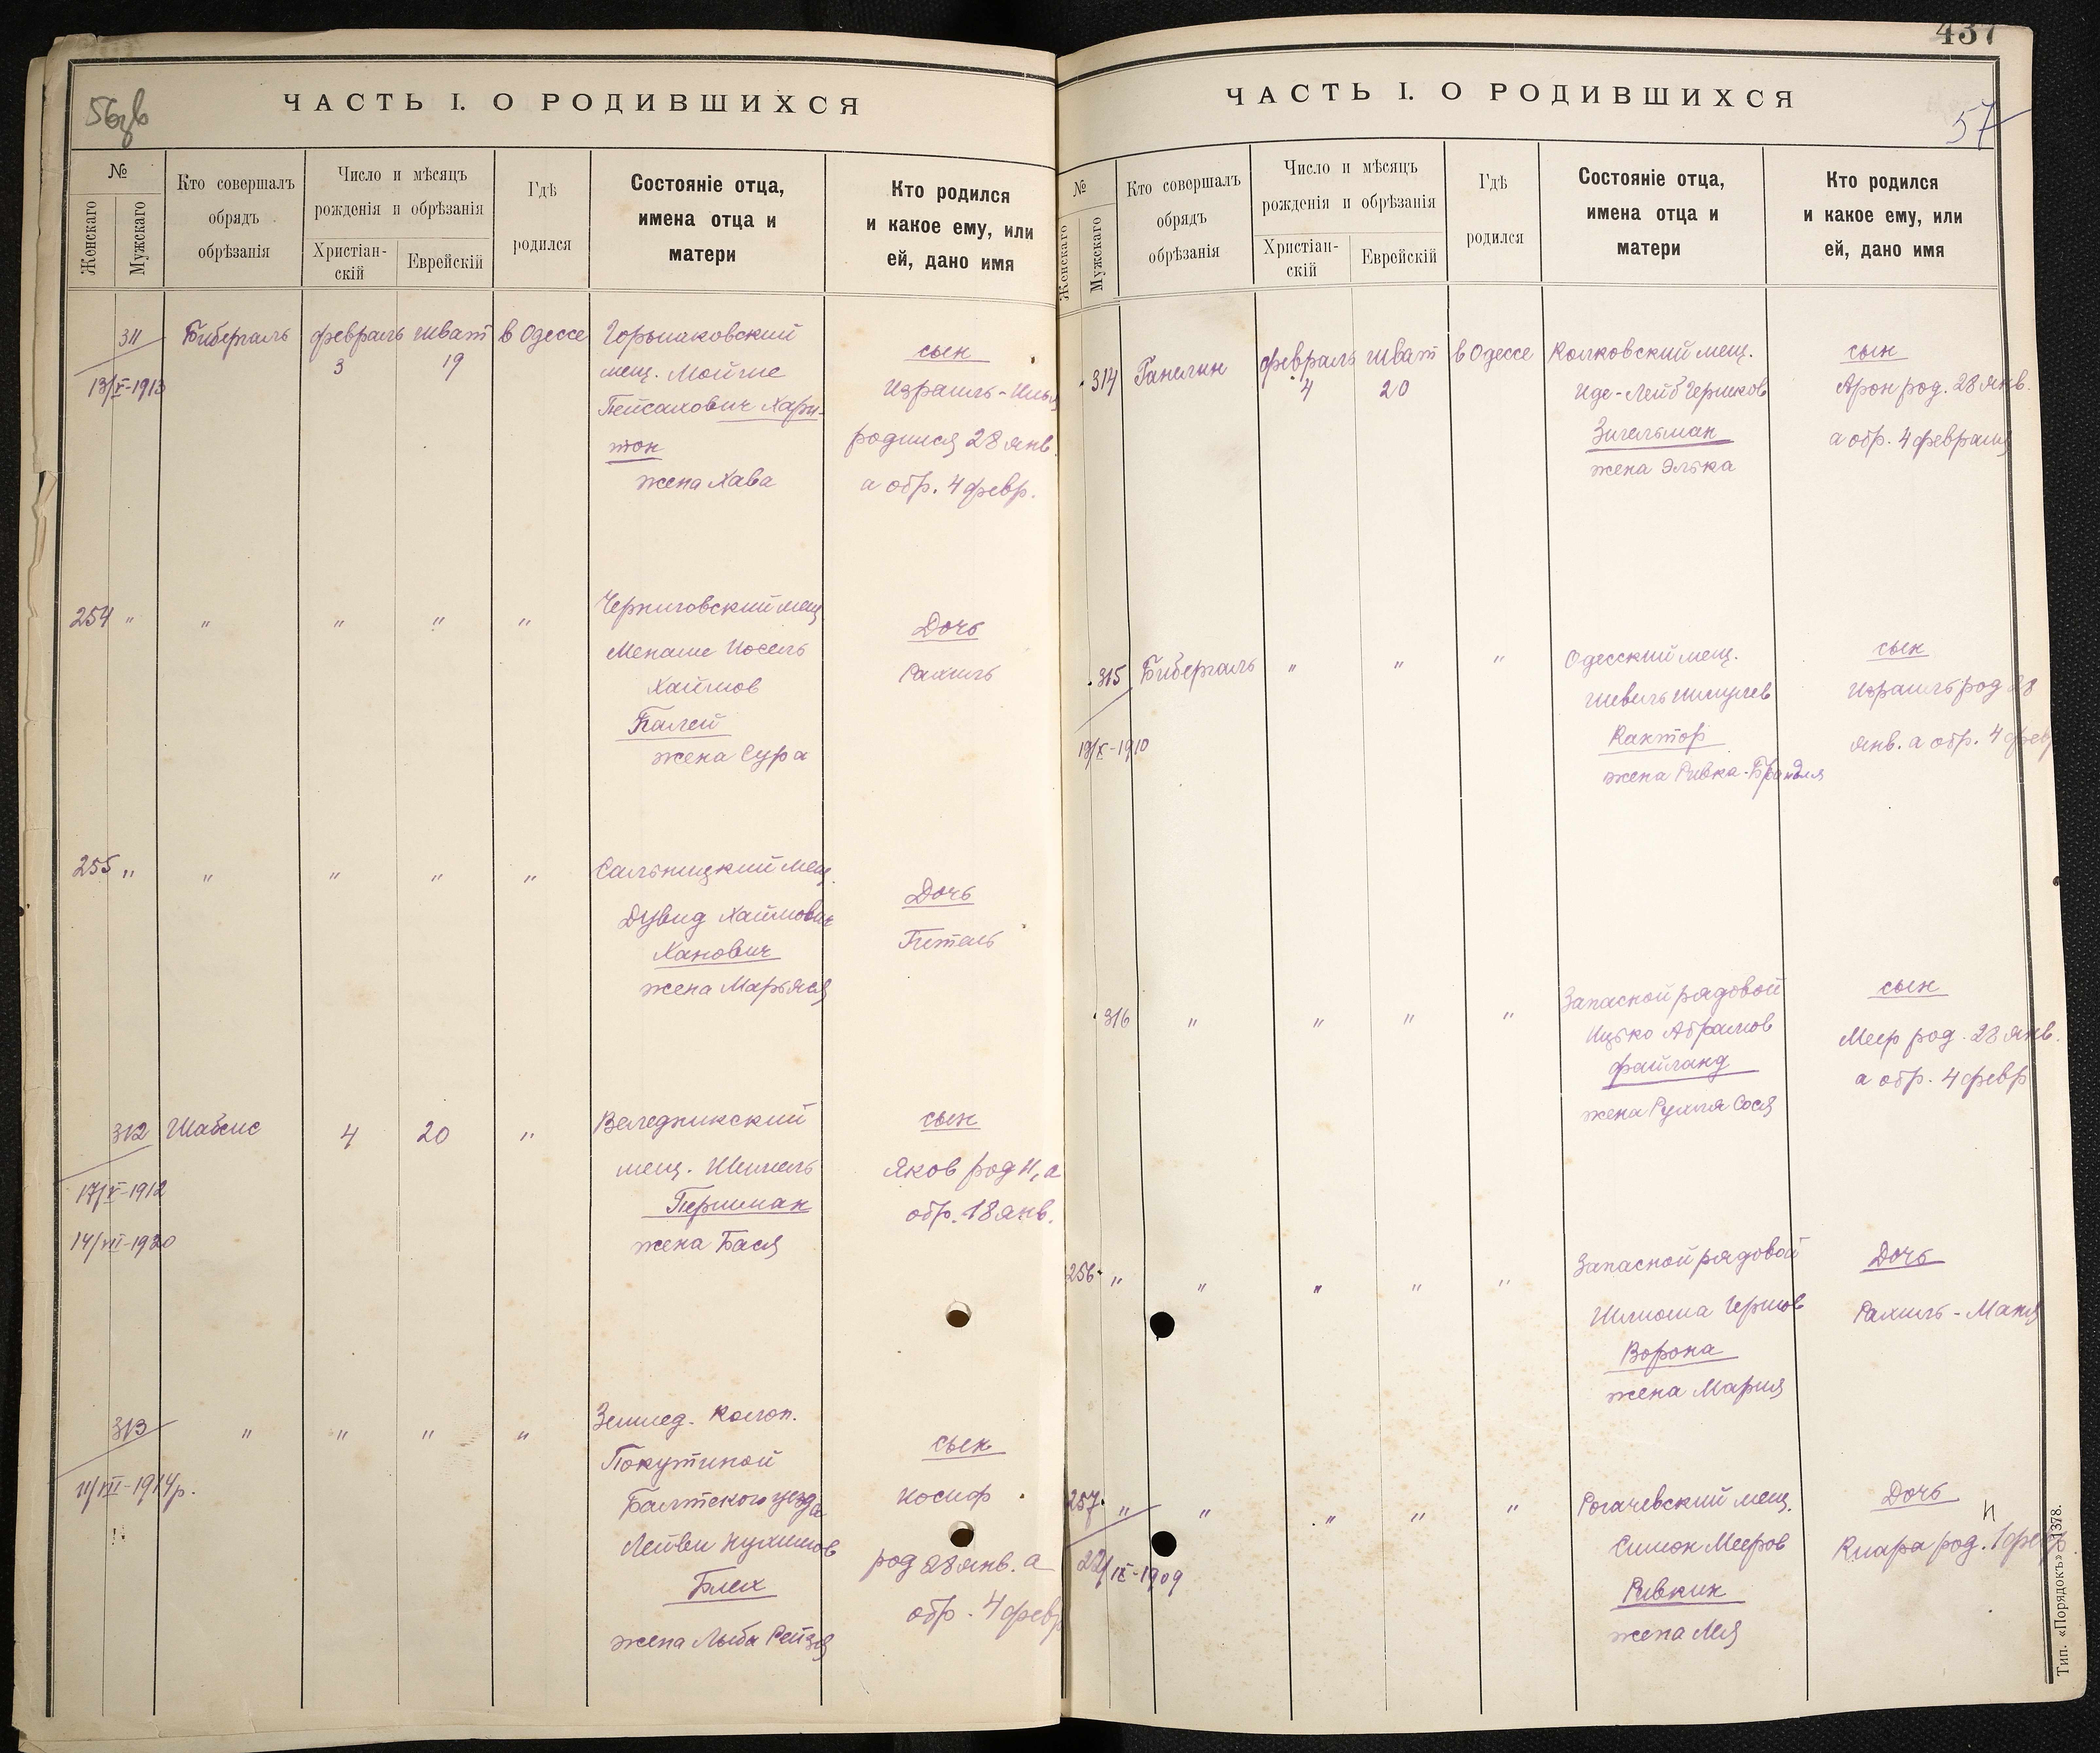 56зв
ЧАСТЬ I. О РОДИВШИХСЯ
№
Женскаго
Мужскаго
Кто совершалъ
обрядъ
обрѣзанія
Число и мѣсяцъ
рожденія и обрѣзанія
Христіан-
скій
Еврейскій
Гдѣ
родился
Состояніе отца,
имена отца и
матери
Кто родился
и какое ему, или
ей, дано имя
311
13/V-1913
Бибергаль
февраль
3
шват
19
в Одессе
Горышковский
мещ. Мойше
Пейсахович Хари-
тон
жена Хава
сын
Израиль-Илья
родился 28 янв.
а обр. 4 февр.
254 " " " " "
Черниговский мещ
Менаше Иосель
Хаимов
Палей
жена Сура
Дочь
Рахиль
255 " " " " "
Сальницкий мещ.
Дувид Хаимович
Ханович
жена Марьяся
Дочь
Гитель
312
17/V-1912
14/VII-1920
Шабсис
4
20
"
Веледникский
мещ. Шмиель
Першман
жена Бася
сын
Яков род 11, а
обр. 18 янв.
313
11/VII-1914р.
" " " "
Землед. колон.
Покутиной
Балтского уезда
Лейви Нухимов
Блех
жена Лыба Рейзя
сын
Иосиф
род 28 янв. а
обр. 4 февр
437
57
ЧАСТЬ I. О РОДИВШИХСЯ
№
Женскаго
Мужскаго
Кто совершалъ
обрядъ
обрѣзанія
Число и мѣсяцъ
рожденія и обрѣзанія
Христіан-
скій
Еврейскій
Гдѣ
родился
Состояніе отца,
имена отца и
матери
Кто родился
и какое ему, или
ей, дано имя
314
Ганелин
февраль
4
шват
20
в Одессе
Колковский мещ.
Иде-Лейб Гершков
Зигельман
жена Элька
сын
Арон род. 28 янв.
а обр. 4 февраля
315
19/X-1910
Бибергаль
" " "
Одесский мещ.
Шевель Шмулев
Кантор
жена Ривка-Брандля
сын
Израиль род 28
янв. а обр. 4 февр
316
" " " "
Запасной рядовой
Ицько Абрамов
Файланд
жена Рухля Сося
сын
Меер род. 28 янв.
а обр. 4 февр
256 " " " " "
Запасной рядовой
Шлиома Гершов
Ворона
жена Мария
Дочь
Рахиль-Маня
257 " " " " "
22/IX-1909
Рогачевский мещ.
Симон Мееров
Ривкин
жена Лея
Дочь
Клара род. 1 февр
Тип. «Порядокъ» 1378.